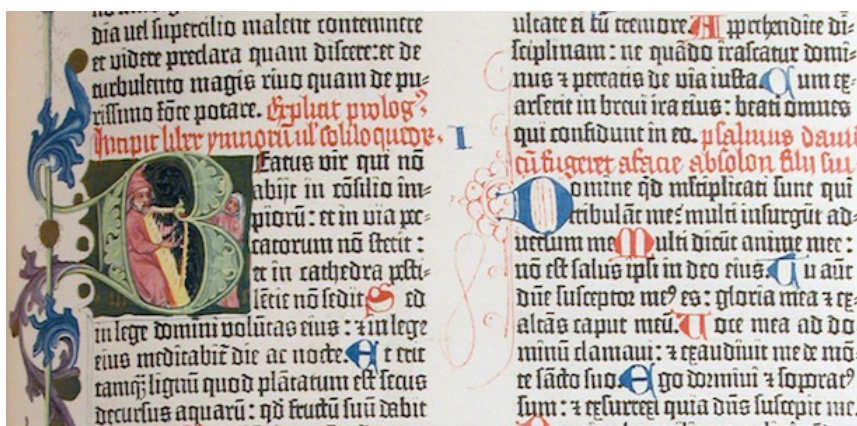 dia uel supercilio malent contemnere
et videre preclara quam discere: et de
turbulento magis riuo quam de pu-
rissimo fōte potare. Explicit prolog⁹
Incipit liber ymnorū ul' soliloquiorū.
Beatus vir qui nō
abijt in cōsilio im-
piorū: et in via pec-
catorum nō stetit:
et in cathedra pesti-
lētie nō sedit. Sed
in lege domini volūtas eius: ⁊ in lege
eius meditabit̄ die ac nocte. Et erit
tamq̄ lignū quod plātatum est secus
decursus aquarū: qd̄ fructū suū dabit
I
ultate ei cū tremore. Apprehendite di-
sciplinam: ne quādo irascatur domi-
nus ⁊ pereatis de via iusta. Cum ex-
arserit in breui ira eius: beati omnes
qui confidunt in eo. psalmus dauid
cū fugeret a facie absolon filij sui
Domine qd̄ ml̄tiplicati sunt qui
tribulāt me: multi insurgūt ad-
uersum me. Multi dicūt anime mee:
nō est salus ipsi in deo eius. Tu aūt
dn̄e susceptor me⁹ es: gloria mea ⁊ ex-
altās caput meū. Uoce mea ad do-
minū clamaui: ⁊ exaudiuit me de mō-
te sācto suo. Ego dormiui ⁊ soporat⁹
sum: ⁊ exsurrexi quia dn̄s suscepit me.